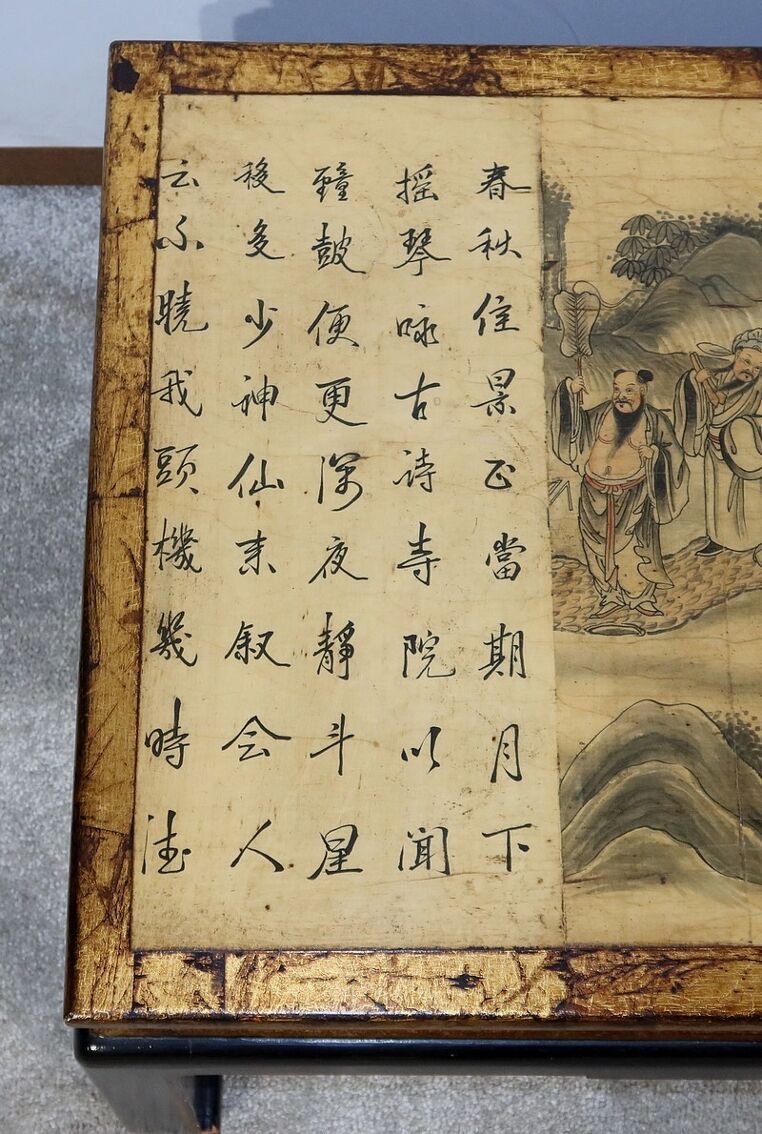 春秋佳景正當期月下
摇琴咏古詩寺院以聞
鐘鼓便更深夜靜斗星
移多少神仙未叙会人
云不曉我頭機幾時